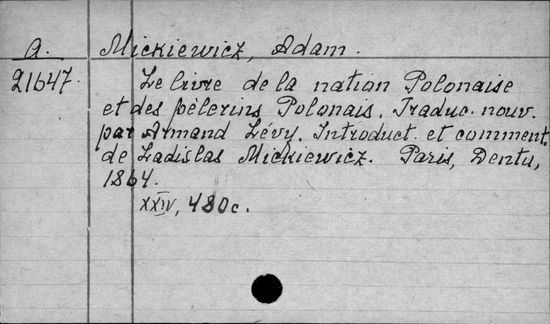 A. Mickiewicz, Adam.
21647. Le livre de la nation Polonaise
et des pèlerins Polonais. Traduc. nouv.
par Armand Lévy. Introduct. et comment.
de Ladislas Mickiewicz. Paris, Dentu,
1864.
XXIV, 480 c.